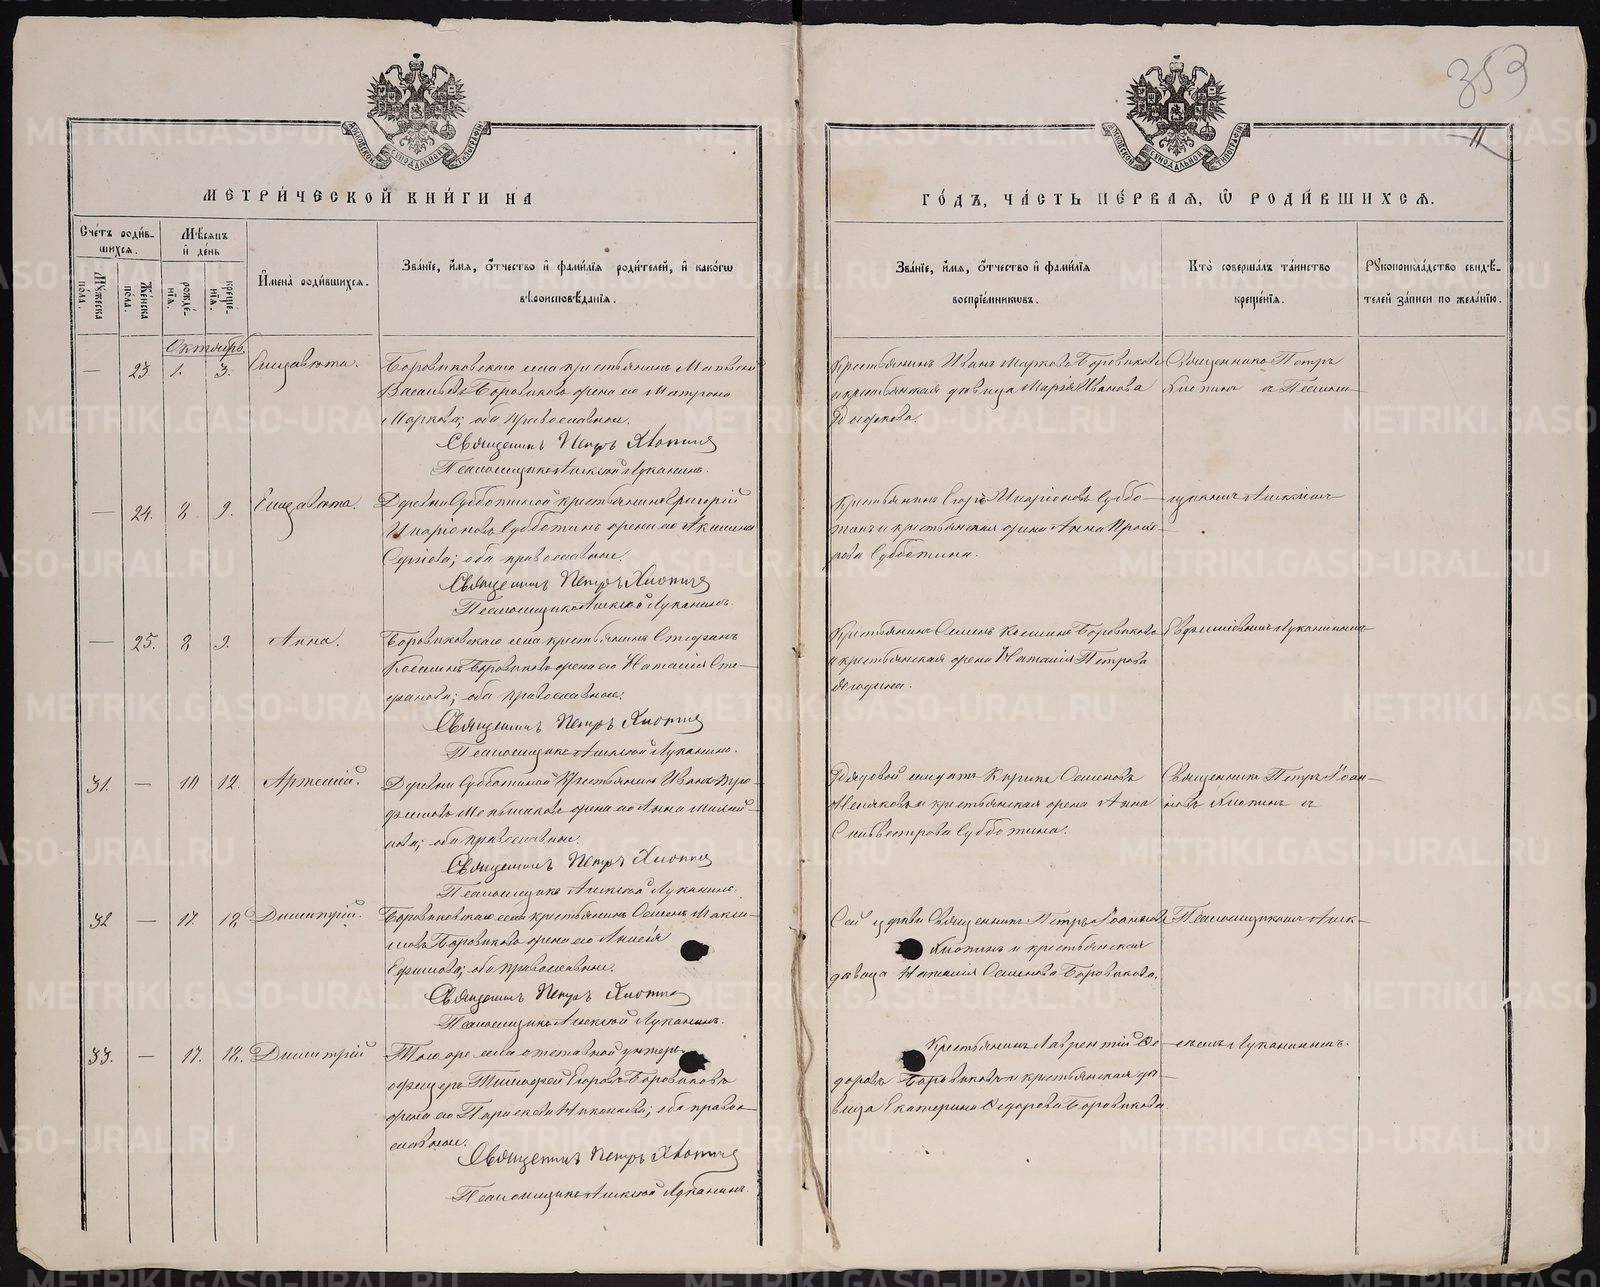 353
11
МЕТРИ́ЧЕСКОЙ КНИ́ГИ НА
ГО́ДЪ, ЧА́СТЬ ПЕ́РВАЯ, Ѿ РОДИ́ВШИХСЯ.
Сче́тъ роди́в-
шихся.
Мѣ́сяцъ
и҆ де́нь
Му́жеска по́ла.
Же́нска по́ла.
рожде́-
нїѧ.
креще́-
нїѧ.
И҆мена̀ роди́вшихся.
Зва́нїе, и҆́мѧ, ѻ҆́тчество и҆ фами́лїѧ роди́телей, и҆ како́гѡ
вѣроисповѣ́данїѧ.
Зва́нїе, и҆́мѧ, ѻ҆́тчество и҆ фами́лїѧ
воспрїе́мникѡвъ.
Кто̀ соверша́лъ та́инство
креще́нїѧ.
Рꙋкоприкла́дство свидѣ́-
телей за́писи по жела́нїю.
Октябрь
— 23. 1. 3. Елизавета.
Боровиковскаго села крестьянинъ Матвей
Васильевъ Боровиковъ жена его Матрона
Маркова; оба православные.
Священникъ Петръ Хлопинъ
Псаломщикъ Алексей Луканинъ.
Крестьянинъ Иванъ Марковъ Боровиковъ
и крестьянская девица Марія Иванова
Священникъ Петръ
Хлопинъ съ Псалом-
— 24. 8. 9. Елизавета.
Деревни Субботиной крестьянинъ Григорий
Иларіоновъ Субботинъ жена его Акилина
Сергіева; оба православные.
Священникъ Петръ Хлопинъ
Псаломщикъ Алексей Луканинъ.
Крестьянинъ Егоръ Иларіоновъ Суббо-
тинъ и крестьянская жена Анна Прохо-
рова Субботина.
щикомъ Алексіемъ
— 25. 8 9. Анна.
Боровиковскаго села крестьянинъ Стефанъ
Косминъ Боровиковъ жена его Наталія Сте-
фанова; оба православные.
Священникъ Петръ Хлопинъ
Псаломщикъ Алексей Луканинъ.
Крестьянинъ Семенъ Косминъ Боровиковъ
и крестьянская жена Наталія Петрова
Луканинымъ
31. — 10 12. Артемій.
Деревни Субботиной Крестьянинъ Иванъ Тро-
фимовъ Меньшиковъ жена его Анна
оба православные.
Священникъ Петръ Хлопинъ
Псаломщикъ Алексей Луканинъ.
Рядовой солдатъ Кирикъ Семеновъ
и крестьянская жена Анна
Сильвестрова Субботина.
Священникъ Петръ Іоан-
новъ Хлопинъ съ
32 — 17. 18 Димитрій.
Боровиковскаго села крестьянинъ Семенъ Макси-
мовъ Боровиковъ жена его Анисія
Ефимова; оба православные.
Священникъ Петръ Хлопинъ
Псаломщикъ Алексей Луканинъ.
Сей церкви Священникъ Петръ Іоанновъ
Хлопинъ и крестьянская
девица Наталія Семенова Боровикова.
Псаломщикомъ Алек-
33. — 17. 18. Димитрій
Того же села отставной унтеръ-
офицеръ Тимофей Егоровъ Боровиковъ
жена его Параскева Никонова; оба право-
славные.
Священникъ Петръ Хлопинъ
Псаломщикъ Алексей Луканинъ.
Крестьянинъ Лаврентій Ѳе-
доровъ Боровиковъ и крестьянская де-
вица Екатерина Ѳедорова Боровикова.
сеемъ Луканинымъ.